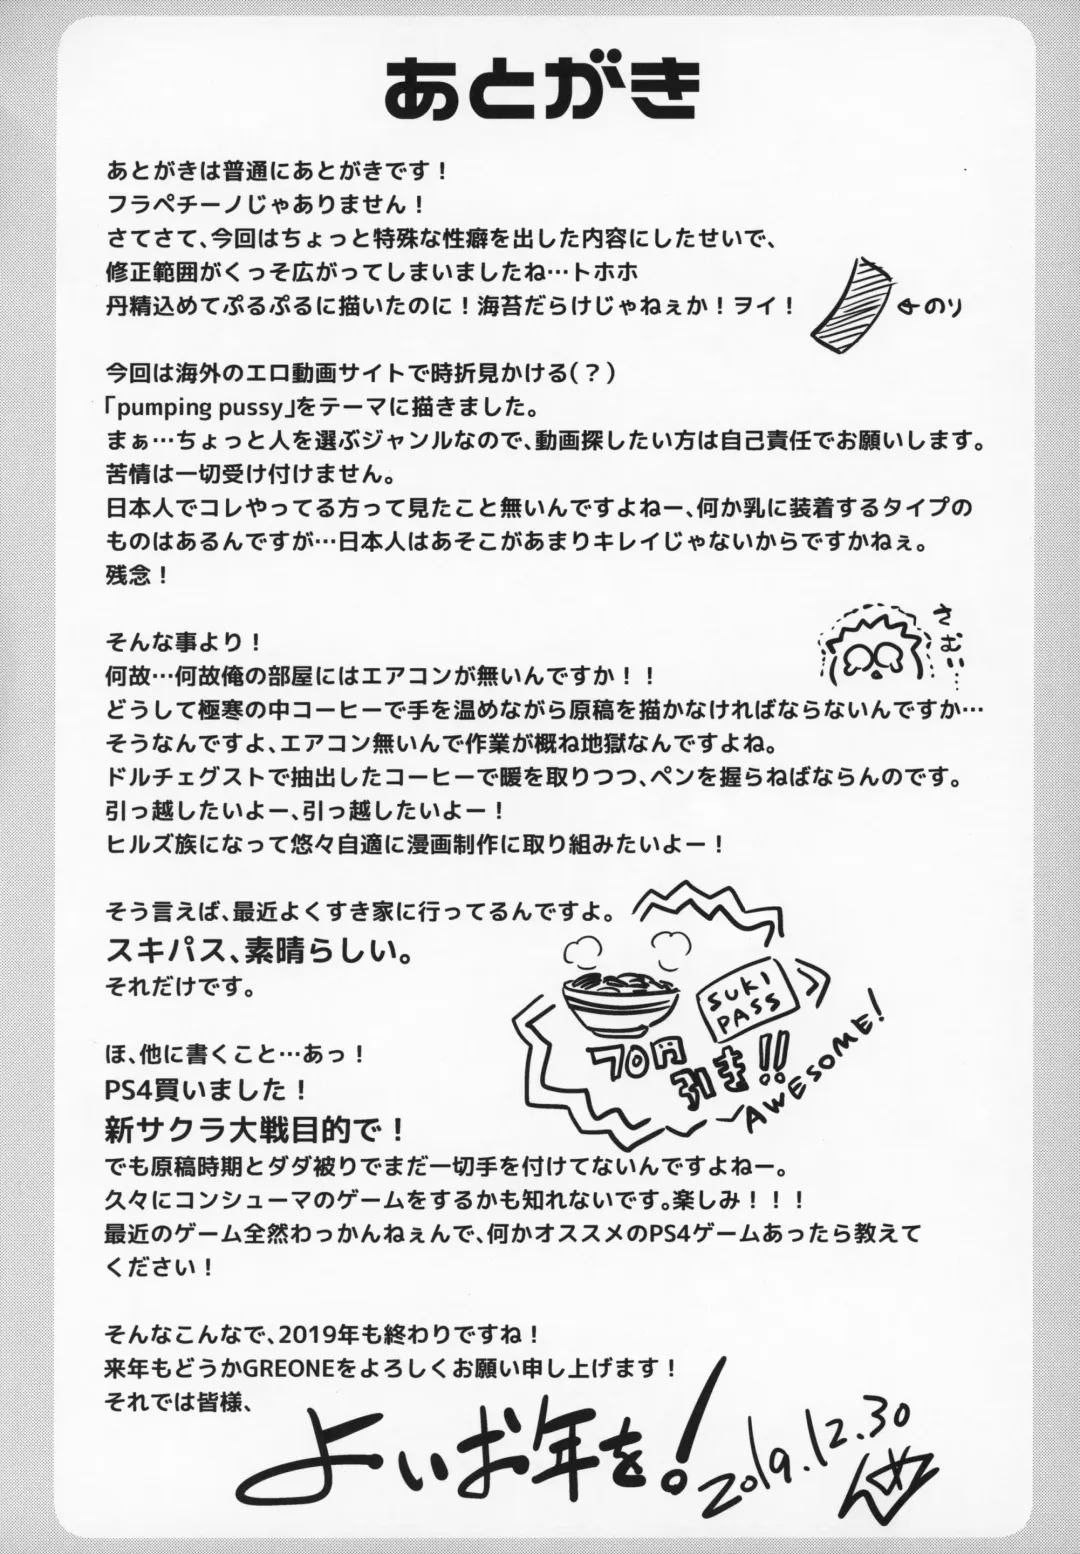 あとがき
あとがきは普通にあとがきです！
フラペチーノじゃありません！
さてさて、今回はちょっと特殊な性癖を出した内容にしたせいで、
修正範囲がくっそ広がってしまいましたね…トホホ
丹精込めてぷるぷるに描いたのに！海苔だらけじゃねぇか！ヲイ！
←のり
今回は海外のエロ動画サイトで時折見かける(？)
「pumping pussy」をテーマに描きました。
まぁ…ちょっと人を選ぶジャンルなので、動画探したい方は自己責任でお願いします。
苦情は一切受け付けません。
日本人でコレやってる方って見たこと無いんですよねー、何か乳に装着するタイプの
ものはあるんですが…日本人はあそこがあまりキレイじゃないからですかねぇ。
残念！
さむい…
そんな事より！
何故…何故俺の部屋にはエアコンが無いんですか！！
どうして極寒の中コーヒーで手を温めながら原稿を描かなければならないんですか…
そうなんですよ、エアコン無いんで作業が概ね地獄なんですよね。
ドルチェグストで抽出したコーヒーで暖を取りつつ、ペンを握らねばならんのです。
引っ越したいよー、引っ越したいよー！
ヒルズ族になって悠々自適に漫画制作に取り組みたいよー！
そう言えば、最近よくすき家に行ってるんですよ。
スキパス、素晴らしい。
それだけです。
SUKI
PASS
70円
引き!!
AWESOME!
ほ、他に書くこと…あっ！
PS4買いました！
新サクラ大戦目的で！
でも原稿時期とダダ被りでまだ一切手を付けてないんですよねー。
久々にコンシューマのゲームをするかも知れないです。楽しみ！！！
最近のゲーム全然わっかんねぇんで、何かオススメのPS4ゲームあったら教えて
ください！
そんなこんなで、2019年も終わりですね！
来年もどうかGREONEをよろしくお願い申し上げます！
それでは皆様、
よいお年を！
2019.12.30